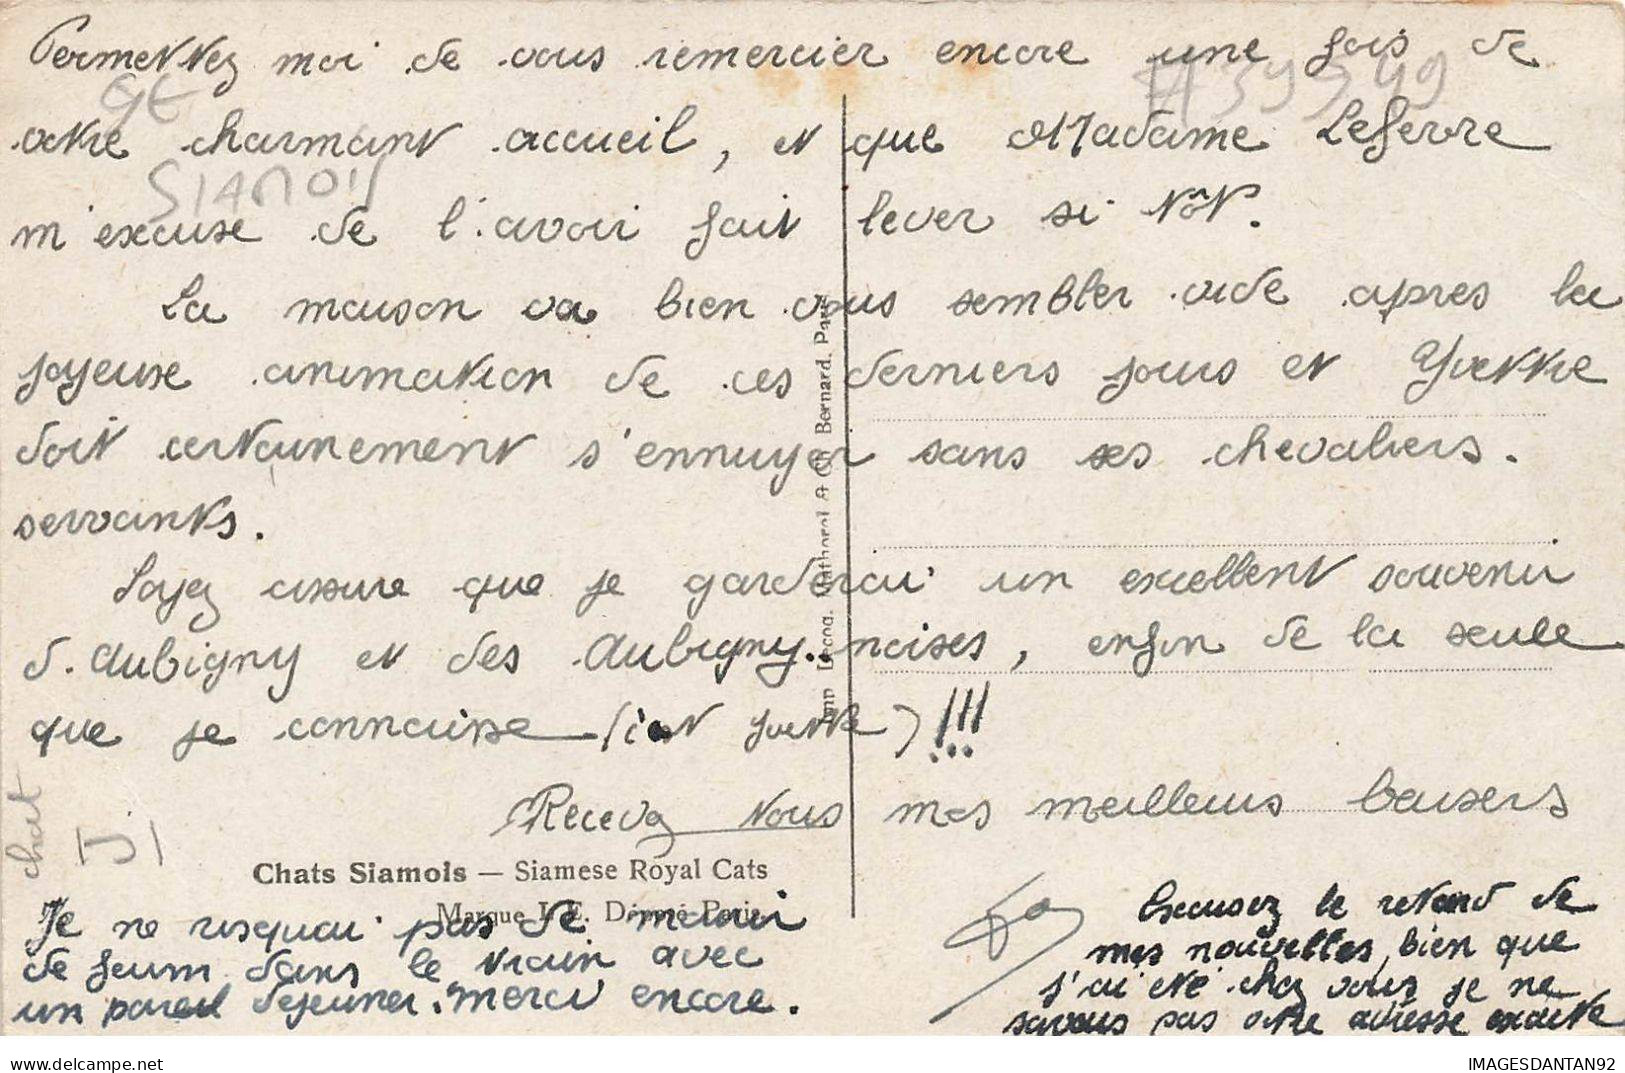 Permettez moi de vous remercier encore une fois de
votre charmant accueil, et que Madame Lefevre
m'excuse de l'avoir fait lever si tôt.
La maison va bien vous sembler vide apres la
joyeuse animation de ces derniers jours et Yvette
doit certainement s'ennuyer sans ses chevaliers.
servants.
Soyez assure que je garderai un excellent souvenir
d'Aubigny et des Aubigny..noises, enfin de la seule
que je connaisse (c'est Yvette) !!!
Recevez tous mes meilleurs baisers
Chats Siamois — Siamese Royal Cats
Marque I. E. Déposé Paris
Je ne risquai pas de mourir
de faim dans le train avec
un pareil dejeuner. Merci encore.
Excusez le retard de
mes nouvelles, bien que
j'ai été chez vous je ne
savais pas votre adresse exacte
GE
SIAMOIS
chat
IMAGESDANTAN92